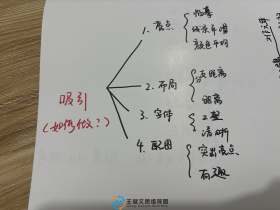 吸引
(如何做?)
1. 亮点
线条平滑
颜色平均
2. 布局
距离
3. 字体
工整
清晰
4. 配图
突出亮点
有趣
王健文思维导图